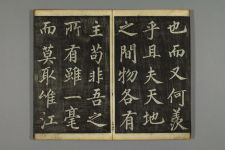 也而又何羨
乎且夫天地
之間物各有
主苟非吾之
所有雖一毫
而莫取惟江